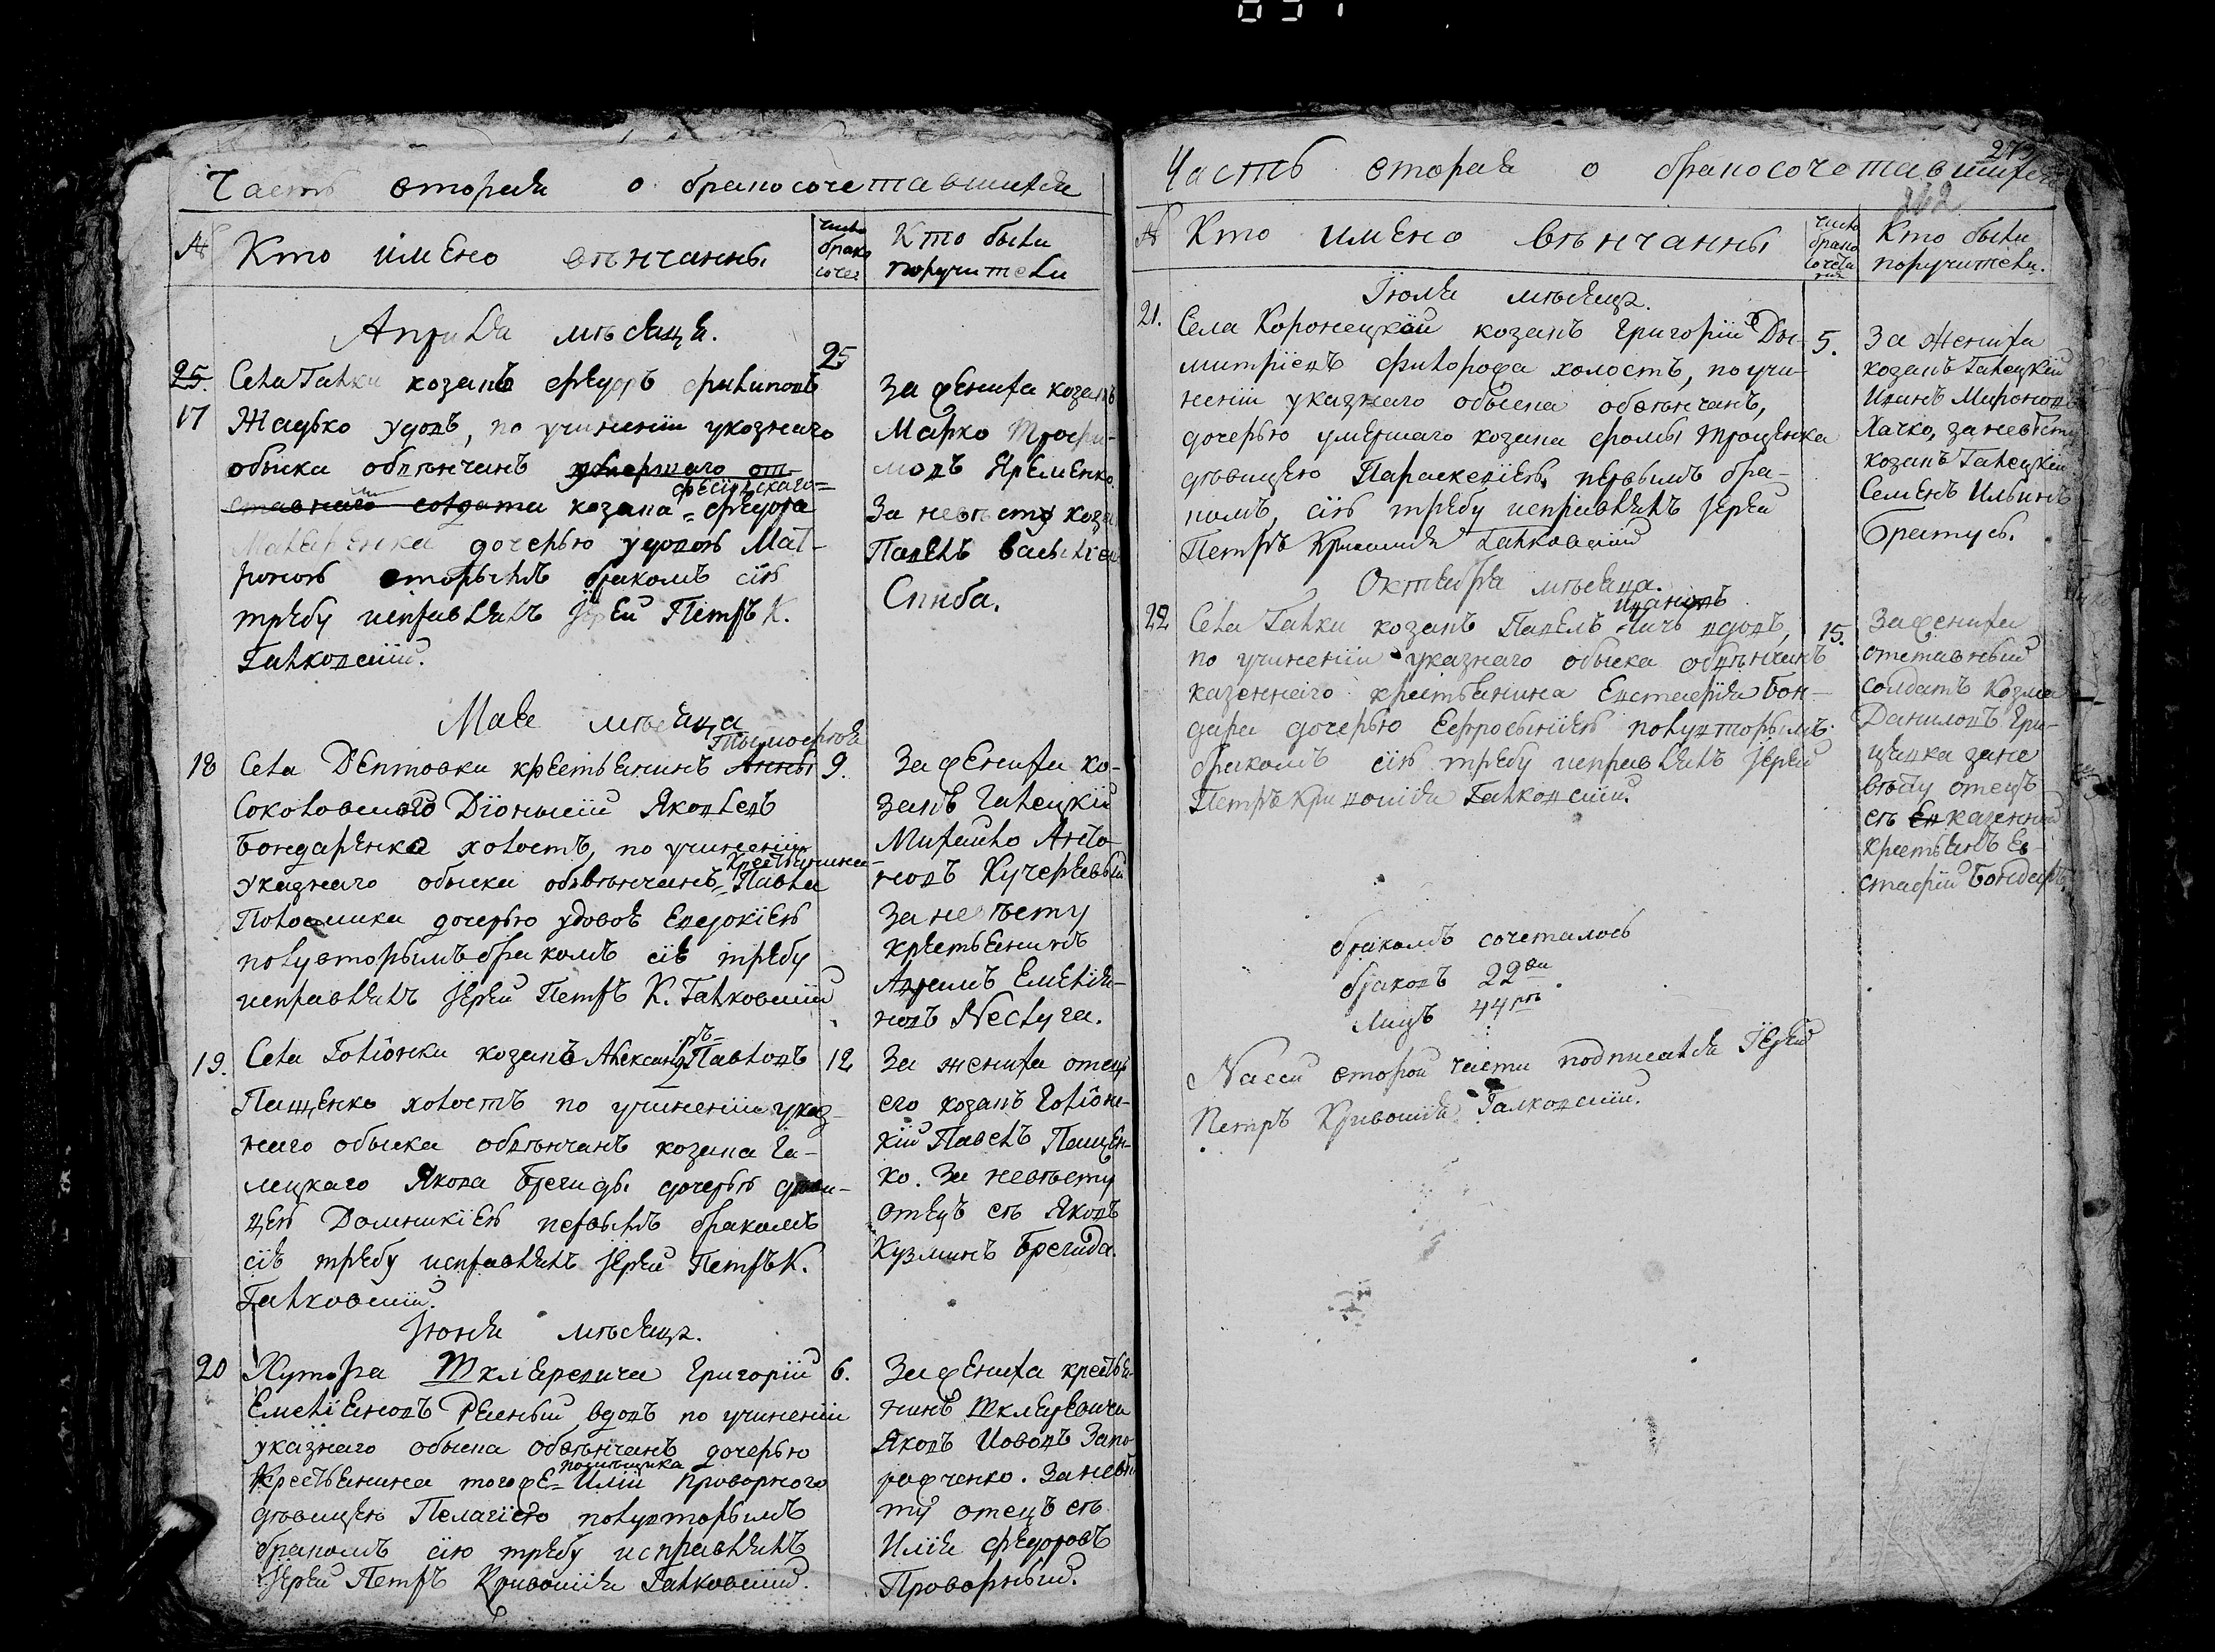 Часть вторая о бракосочетавшихся
№
Кто имено венчанны
число
брако
сочет
Кто были
поручители
Априля мѣсяца.
25.
25
Села Галки козакъ Федоръ Филиповъ
17
Жадько удовъ, по учиненіи указнаго
обыска обвѣнчанъ умершаго от-
ставнаго солдата козака Федора
дочерью удовою Мат-
роною вторымъ бракомъ сію
требу исправлялъ Іерей Петръ К.
Галковскій.
За жениха козакъ
Марко Трофи-
мовъ Яременко.
За невѣсту коза
Павелъ Василіев
Скиба.
Мая мѣсяца
Тимофѣя
18
Села Дептовки крестьянинъ Анны
9.
Соковскаго Діонисій Яковлевъ
Бондаренко холостъ, по учиненіи
крестьянина
указнаго обыска обвѣнчанъ Павла
дочерью удовоѣ Евдокіею
полувторымъ бракомъ сіѣ требу
исправлялъ Іерей Петръ К. Галковскій
За жениха ко-
закъ Галецкій
Михайло Анто-
новъ Кучерявый
За невѣсту
крестьянинъ
Емелія-
новъNeстуга.
19.
Села Голінки козакъ Александръ Павловъ
12
Пащенко холостъ по учиненіи указ-
наго обыска обвѣнчанъ козака Га-
лецкаго Якова Брегиды дочерью дѣви-
цею Домникіею первымъ бракомъ
сіѣ требу исправлялъ Іерей Петръ К.
Галковскій.
За жениха отецъ
его козакъ Голін-
кій Павелъ Пащен-
ко. За невѣсту
отецъ еѣ Яковъ
Кузминъ Брегида.
Іюня мѣсяца.
20
Хутора Шкляревича Григорій
6.
Емеліяновъ вдовъ по учиненіи
указнаго обыска обвѣнчанъ дочерью
помѣщика
Крестьянина тогоже Иліи Проворного
дѣвицею Пелагіею полувторымъ
бракомъ сію требу исправлялъ
Іерей Петръ Кривошія Галковскій.
За жениха крестья-
нинъ Шкляревича
Яковъ Иововъ Запо
рожченко. За невѣс
ту отецъ еѣ
Илія Федоровъ
Проворный.
Часть вторая о бракосочетавшихся
273
262
№
Кто имено вѣнчанны
число
брако
сочета
нія
Кто были
поручители.
Іюля мѣсяца.
21.
Села Коронецкій козакъ Григорій Ды-
5.
митріевъ холостъ, по учи-
неніи указнаго обыска обвѣнчанъ,
дочерью умершаго козака Фомы Троценка
дѣвицею Параскевіею, первымъ бра-
комъ, сію требу исправлялъ Іерей
Петръ Кривошія Галковскій
За жениха
козакъ Галецкій
Иванъ Мироновъ
Хачко, за невѣсту
козакъ Галецкій
Семенъ Ильинъ
Братусь.
Октября мѣсяца.
Ивановъ
22
Села Галки козакъ Павелъ вдовъ,
15.
по учиненіи указнаго обыска обвѣнчанъ
казеннаго крестьянина Евстафія Бон-
даря дочерью Ефросиніею полувторымъ
бракомъ сію требу исправлялъ Іерей
Петръ Кривошія Галковскій.
За жениха
отставный
солдатъ Козма
Даниловъ Гри-
за не
вѣсту отецъ
еѣ казенный
крестьянъ Ев-
стафій Бондарь.
бракомъ сочеталось
браковъ 22ва
Лицъ 44ре.
Na сей второй части подписался Іерей
Петръ Кривошія Галковскій.